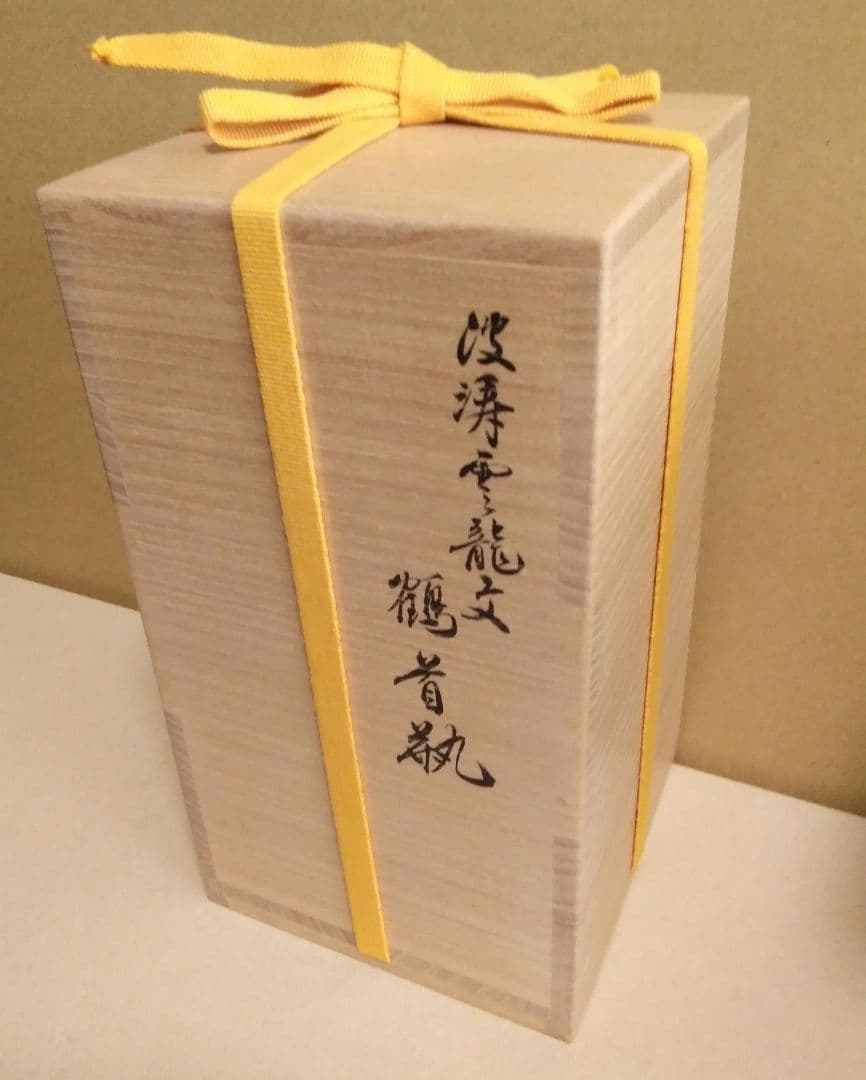 波濤雲龍文
鶴首瓶